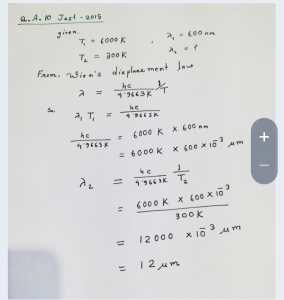 Q.A.10 Jest - 2015
given.
T₁ = 6000 K , λ₁ = 600 nm
T₂ = 300K λ₂ = ?
From, Wien's displacement law
λ = hc / 4.9663 K 1/T
So, λ₁ T₁ = hc / 4.9663 K
hc / 4.9663 K = 6000 K × 600 nm
= 6000 K × 600 × 10⁻³ μm
λ₂ = hc / 4.9663 K 1 / T₂
= 6000 K × 600 × 10⁻³ / 300 K
= 12000 × 10⁻³ μm
= 12 μm